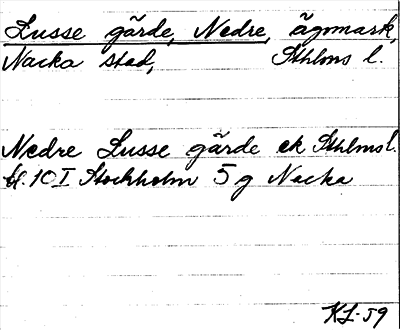 Lusse gärde, Nedre, ägomark,
Nacka stad, Sthlms l.
Nedre Lusse gärde ek Sthlms l.
bl. 10 I Stockholm 5 g Nacka
KL-59